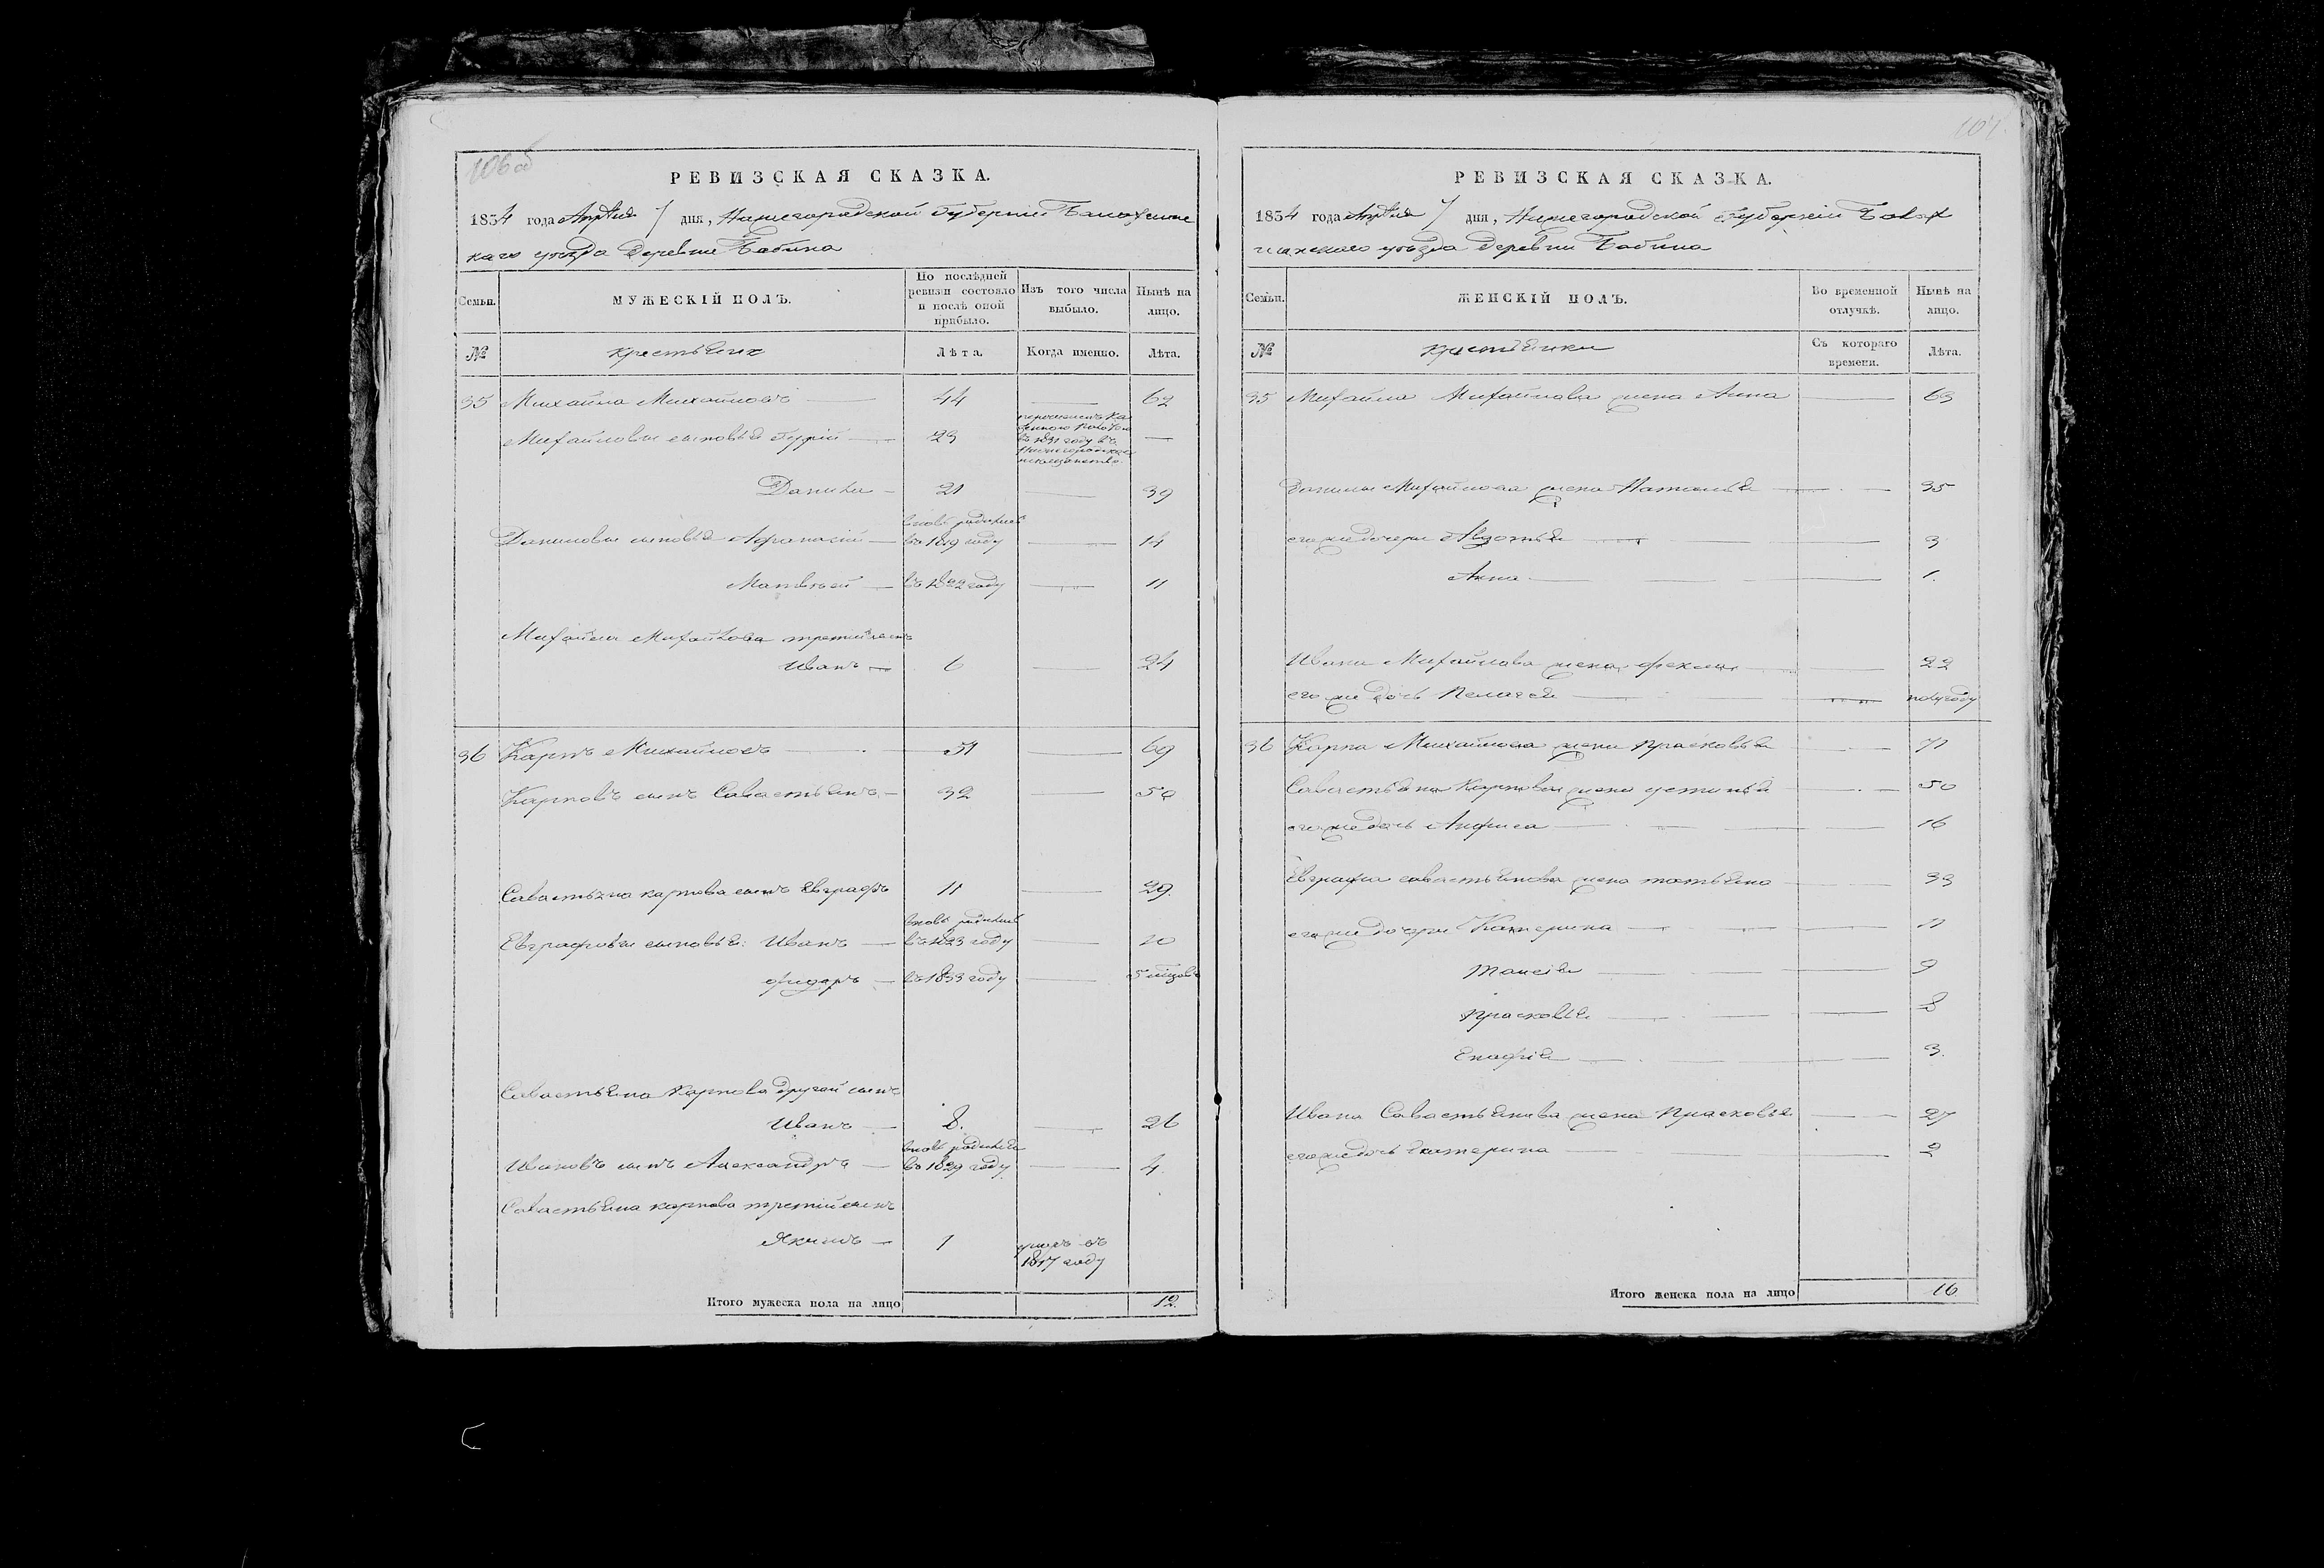 106 об
РЕВИЗСКАЯ СКАЗКА.
1834 года Апреля 7 дня, Нижегородской Губернии Балахнинс
каго уезда Деревни Бабина
Семьи.
МУЖЕСКІЙ ПОЛЪ.
По послѣдней ревизіи состояло и послѣ оной прибыло.
Изъ того числа выбыло.
Нынѣ на лицо.
№
крестьяне
Лѣта.
Когда именно.
Лѣта.
35 Михайла Михайловъ 44 62
Михайловы сыновья Гурій 23
въ 1831 году въ
Данила 21 39
вновь рожденъ
Даниловы сыновья Афанасій въ 1819 году 14
Матвей въ 1822 году 11
Михайла Михайлова третій сынъ
Иванъ 6 24
36 Карпъ Михайловъ 51 69
Карповъ сынъ Савастьянъ 32 50
Савастьяна карпова сынъ Евграфъ 11 29
вновь рожденъ
Евграфовы сыновья: Иванъ въ 1823 году 10
Фидоръ въ 1833 году 5 мцовъ
Савастьяна Карпова другой сынъ
Иванъ 8. 26
вновь рожденъ
Ивановъ сынъ Александръ въ 1829 году 4.
Савастьяна карпова третій сынъ
Якимъ 1 умеръ въ
1817 году
Итого мужеска пола на лицо 12
107
РЕВИЗСКАЯ СКАЗКА.
1834 года Апреля 7 дня, Нижегородской Губерніи Балах
нинскаго уезда Деревни Бабина
Семьи.
ЖЕНСКІЙ ПОЛЪ.
Во временной отлучкѣ.
Нынѣ на лицо.
№
крестьянки
Съ котораго времени.
Лѣта.
35 Михайла Михайлова жена Анна 63
Данилы Михайлова жена Наталья 35
его же дочери Авдотья 3
Анна 1.
Ивана Михайлова жена Фекла 22
его же дочь Пелагея полугоду
36 Карпа Михайлова жена Прасковья 71
Савастьяна Карпова жена устинья 50
его же дочь Анфиса 16
Евграфа савастьянова жена татьяна 33
его же дочери Катерина 11
Таисія 9
Прасковья 8
Епафія 3.
Ивана Савастьянова жена Прасковья 27
его же дочь Екатерина 2
Итого женска пола на лицо 16